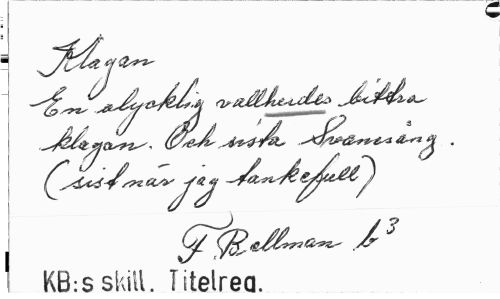 Klagan
En olycklig vallherdes bittra
klagan. Och sista Svanesång.
(sist när jag tankefull)
F. Bellman b3
KB:s skill. Titelreg.